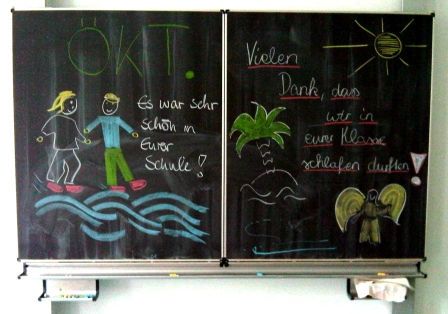 ÖKT.
Es war sehr
schön in
Eurer
Schule!
Vielen
Dank, dass
wir in
eurer Klasse
schlafen durften!